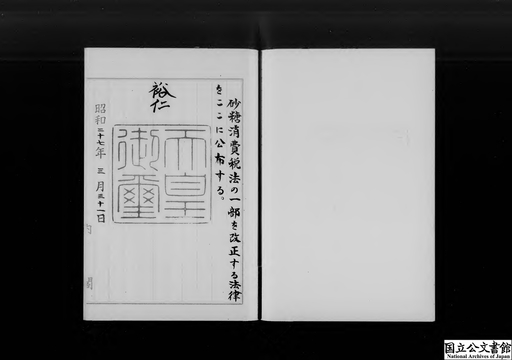 砂糖消費税法の一部を改正する法律
をここに公布する。
裕仁
天皇
御璽
昭和三十七年三月三十一日
内閣
国立公文書館
National Archives of Japan